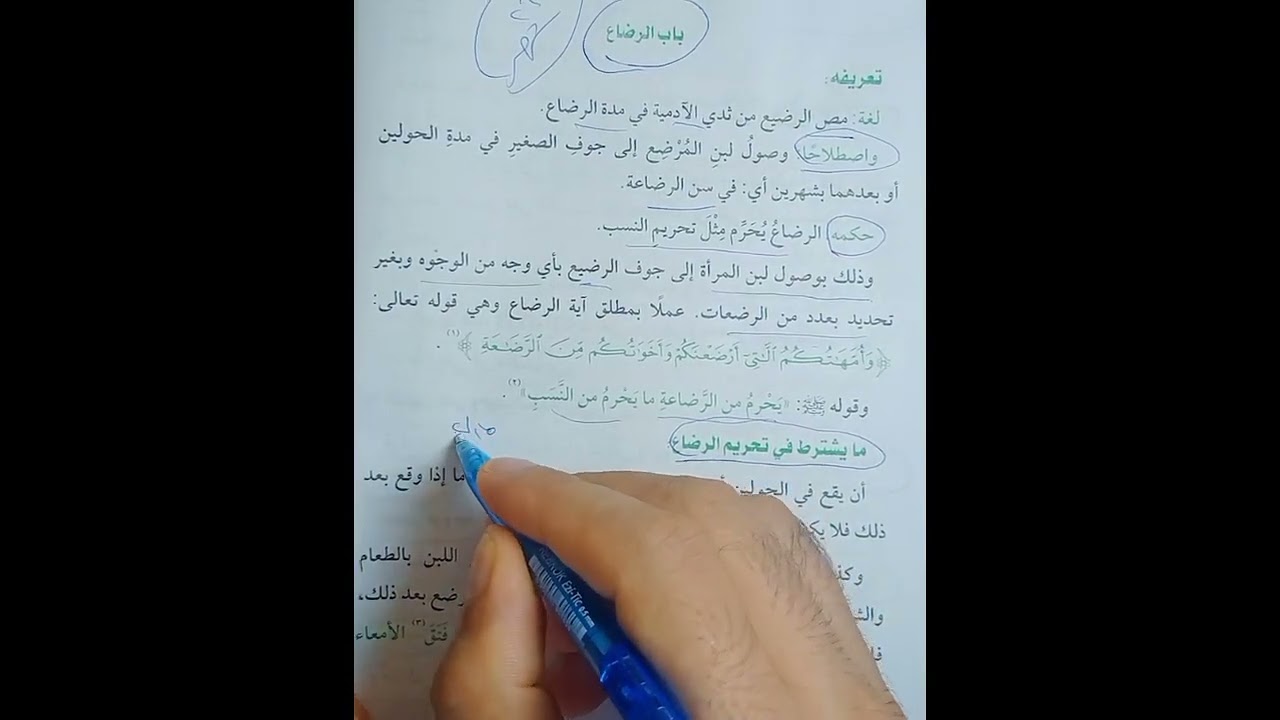 باب الرضاع
تعريفه:
لغة: مص الرضيع من ثدي الآدمية في مدة الرضاع.
واصطلاحًا: وصولُ لبنِ المُرْضِع إلى جوفِ الصغيرِ في مدةِ الحولين
أو بعدهما بشهرين أي: في سن الرضاعة.
حكمه: الرضاعُ يُحَرِّم مِثْلَ تحريمِ النسب.
وذلك بوصول لبن المرأة إلى جوف الرضيع بأي وجه من الوجوه وبغير
تحديد بعدد من الرضعات. عملًا بمطلق آية الرضاع وهي قوله تعالى:
﴿وَأُمَّهَٰتُكُمُ ٱلَّٰتِىٓ أَرْضَعْنَكُمْ وَأَخَوَٰتُكُم مِّنَ ٱلرَّضَٰعَةِ﴾(١).
وقوله ﷺ: «يَحْرمُ من الرَّضاعةِ ما يَحْرمُ من النَّسَبِ»(٢).
ما يشترط في تحريم الرضاع
أن يقع في الحولين ما إذا وقع بعد
ذلك فلا
اللبن بالطعام
رضع بعد ذلك،
فَتَقَ(٣) الأمعاء
Ezi-Tic 0.5